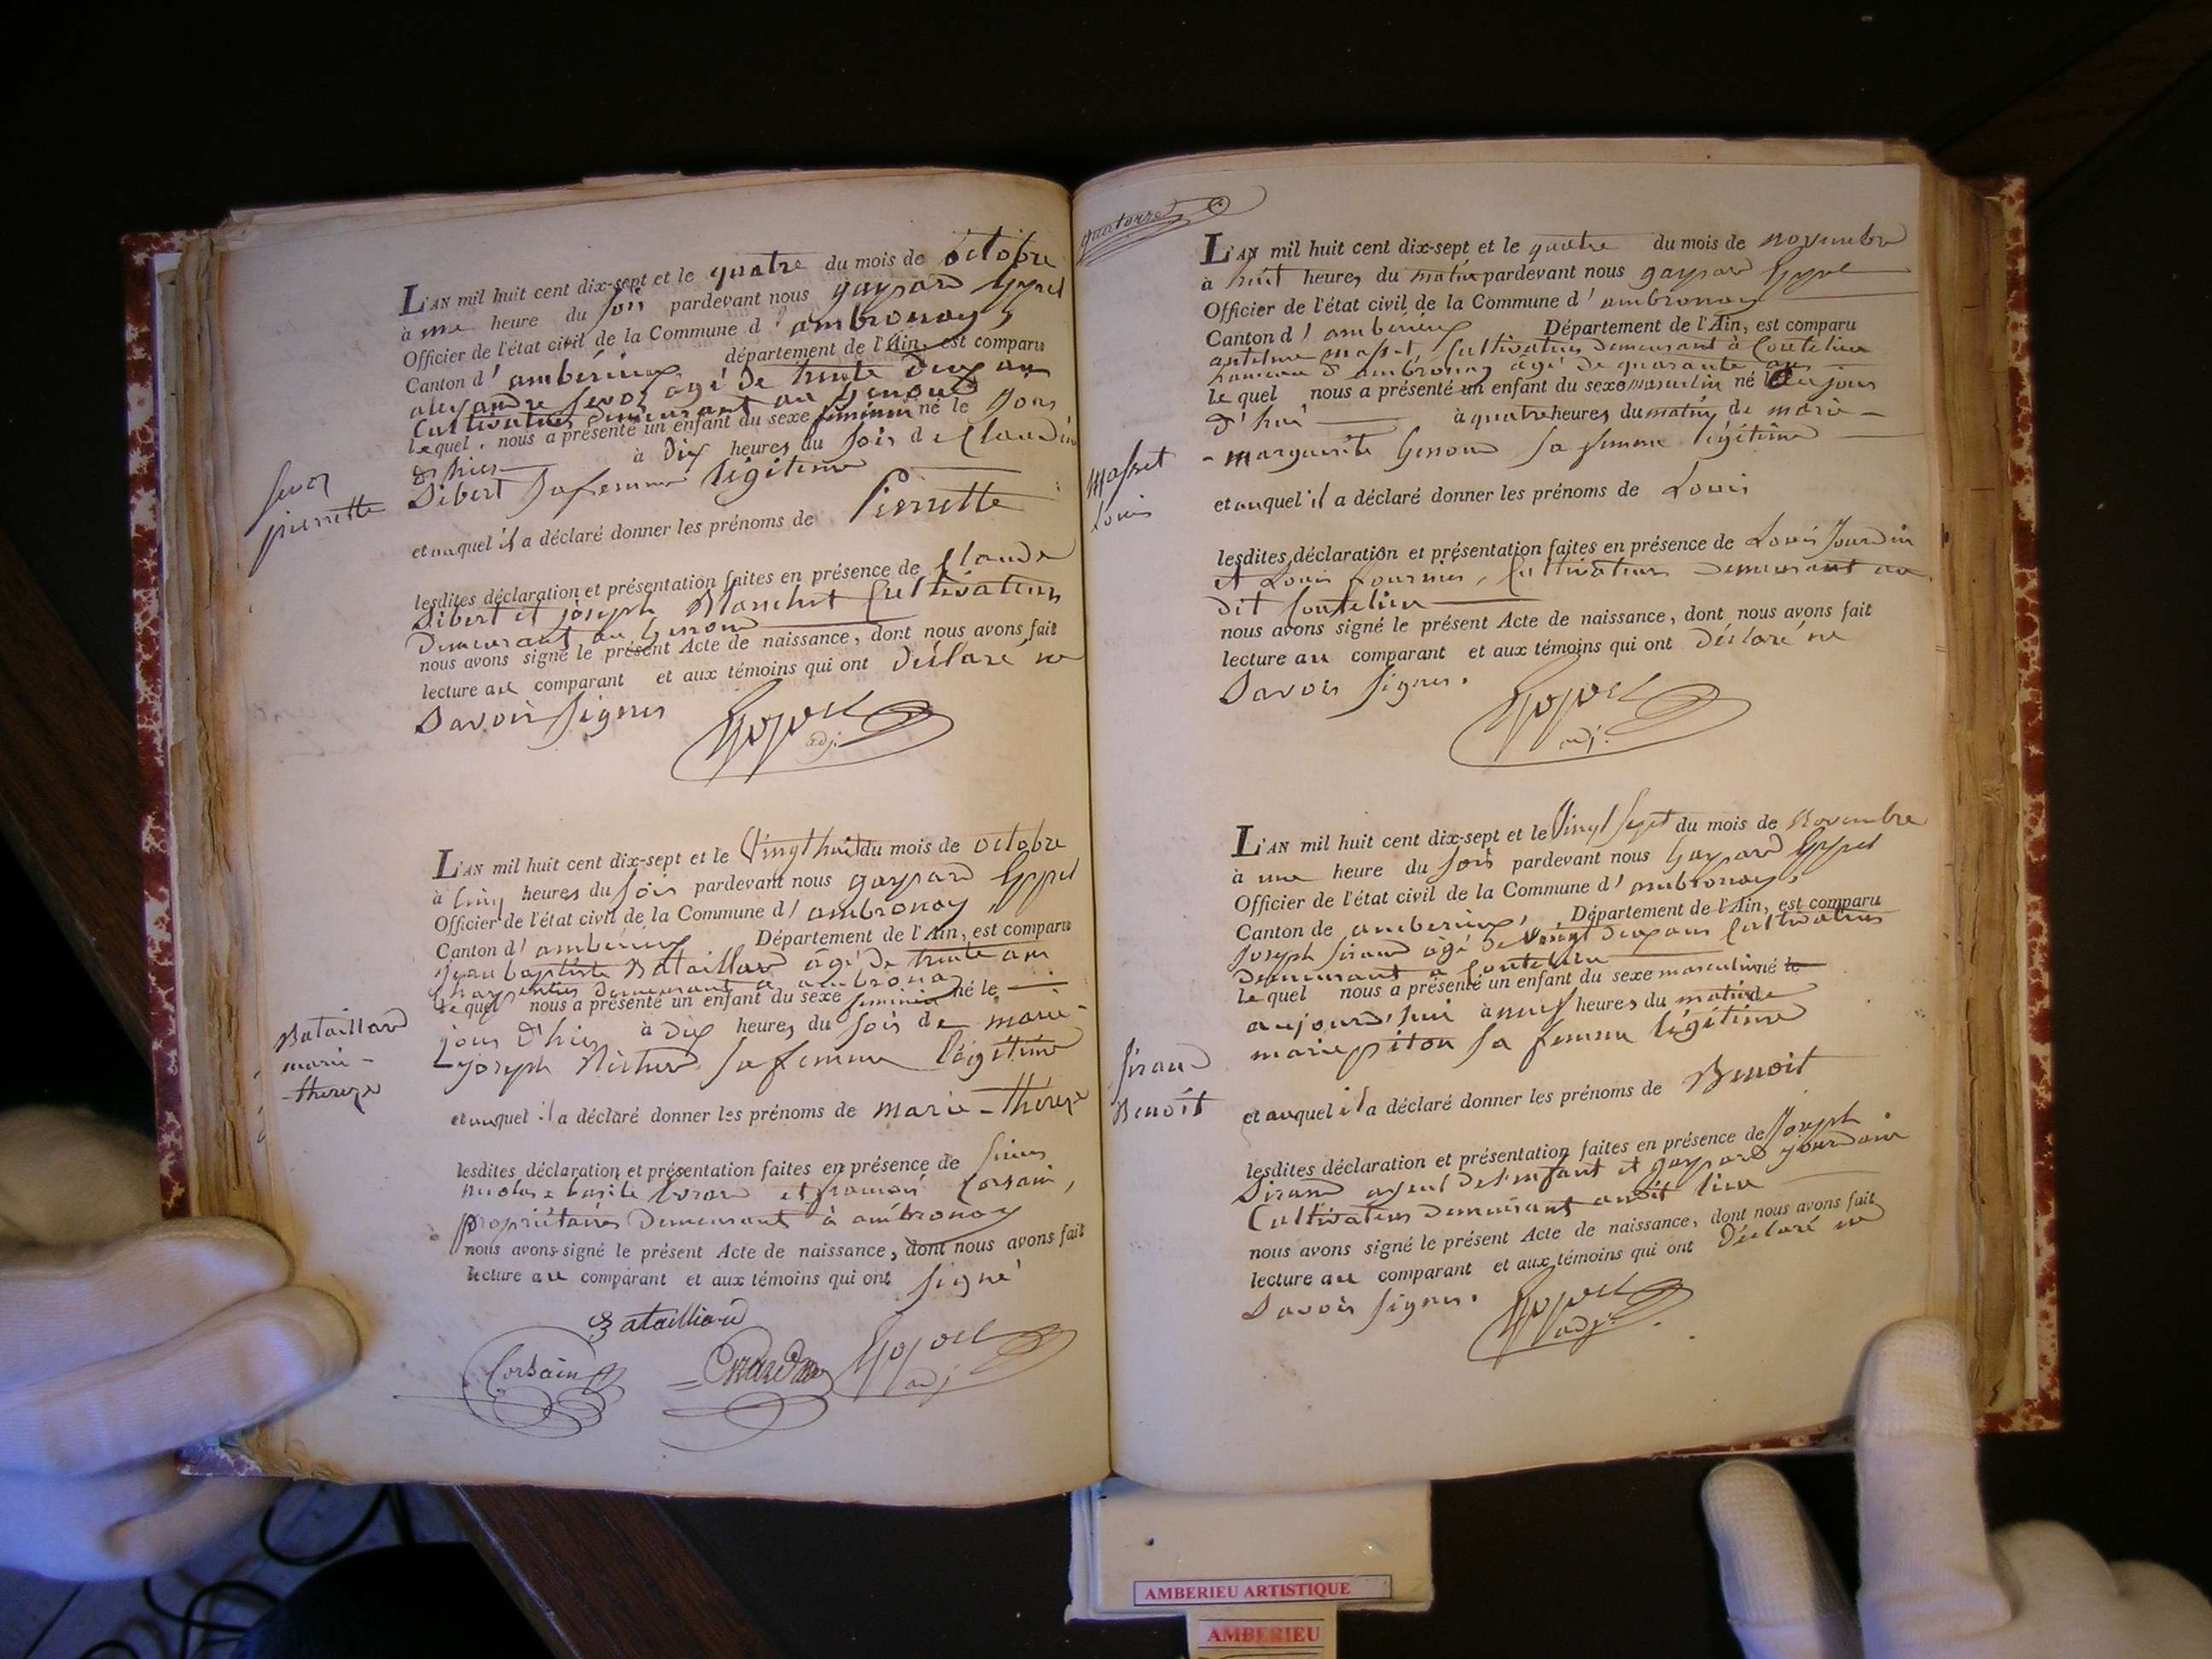 Sevoz
pierrette
L'AN mil huit cent dix-sept et le quatre du mois de octobre
à une heure du Soir pardevant nous gaspard
Officier de l'état civil de la Commune d'ambronay
Canton d'ambérieux département de l'Ain, est comparu
alexandre Sevoz agé de trente deux ans
Cultivateur demeurant au Genoud
lequel nous a présenté un enfant du sexe féminin né le jour
d'hier à dix heures du Soir de Claudine
Sibert Sa femme légitime
et auquel il a déclaré donner les prénoms de Pierrette
lesdites déclaration et présentation faites en présence de Claude
Sibert et joseph Blanchet Cultivateurs
demeurant au Genoud
nous avons signé le présent Acte de naissance, dont nous avons fait
lecture au comparant et aux témoins qui ont déclaré ne
Savoir Signer
adj.
Bataillard
marie-
-thereze
L'AN mil huit cent dix-sept et le Vingt huit du mois de octobre
à Cinq heures du Soir pardevant nous gaspard
Officier de l'état civil de la Commune d'ambronay
Canton d'ambérieux Département de l'Ain, est comparu
jean baptiste Bataillard âgé de trente ans
Charpentier demeurant à ambronay
lequel nous a présenté un enfant du sexe féminin né le
jour d'hier à dix heures du Soir de marie-
joseph Sa femme légitime
et auquel il a déclaré donner les prénoms de marie-thérèze
lesdites déclaration et présentation faites en présence de
nicolas basile et françois Corsain,
propriétaires demeurant à ambronay
nous avons signé le présent Acte de naissance, dont nous avons fait
lecture au comparant et aux témoins qui ont Signé
Bataillard
Corsain
adj
quatorze
Masset
Louis
L'AN mil huit cent dix-sept et le quatre du mois de novembre
à huit heures du matin pardevant nous gaspard
Officier de l'état civil de la Commune d'ambronay
Canton d'ambérieux Département de l'Ain, est comparu
antelme masset Cultivateur demeurant à Coutelieu
hameau d'ambronay âgé de quarante ans
lequel nous a présenté un enfant du sexe masculin né le jour
d'hui à quatre heures du matin de marie-
-marguerite Genoud Sa femme légitime
et auquel il a déclaré donner les prénoms de Louis
lesdites déclaration et présentation faites en présence de Louis Jourdin
et Louis fournier, Cultivateurs demeurant au
dit Coutelieu
nous avons signé le présent Acte de naissance, dont nous avons fait
lecture au comparant et aux témoins qui ont déclaré ne
Savoir Signer.
adj.
Siraud
Benoît
L'AN mil huit cent dix-sept et le Vingt Sept du mois de Novembre
à une heure du Soir pardevant nous Gaspard
Officier de l'état civil de la Commune d'ambronay,
Canton de amberieux, Département de l'Ain, est comparu
Joseph Siraud âgé de vingt deux ans Cultivateur
demeurant à Coutelieu
lequel nous a présenté un enfant du sexe masculin né le
aujourd'hui à neuf heures du matin de
marie piton Sa femme légitime
et auquel il a déclaré donner les prénoms de Benoit
lesdites déclaration et présentation faites en présence de Joseph
Siraud ayeul de l'enfant et gaspard jourdain
Cultivateurs demeurant audit lieu
nous avons signé le présent Acte de naissance, dont nous avons fait
lecture au comparant et aux témoins qui ont déclaré ne
Savoir Signer.
adj.
AMBERIEU ARTISTIQUE
AMBERIEU